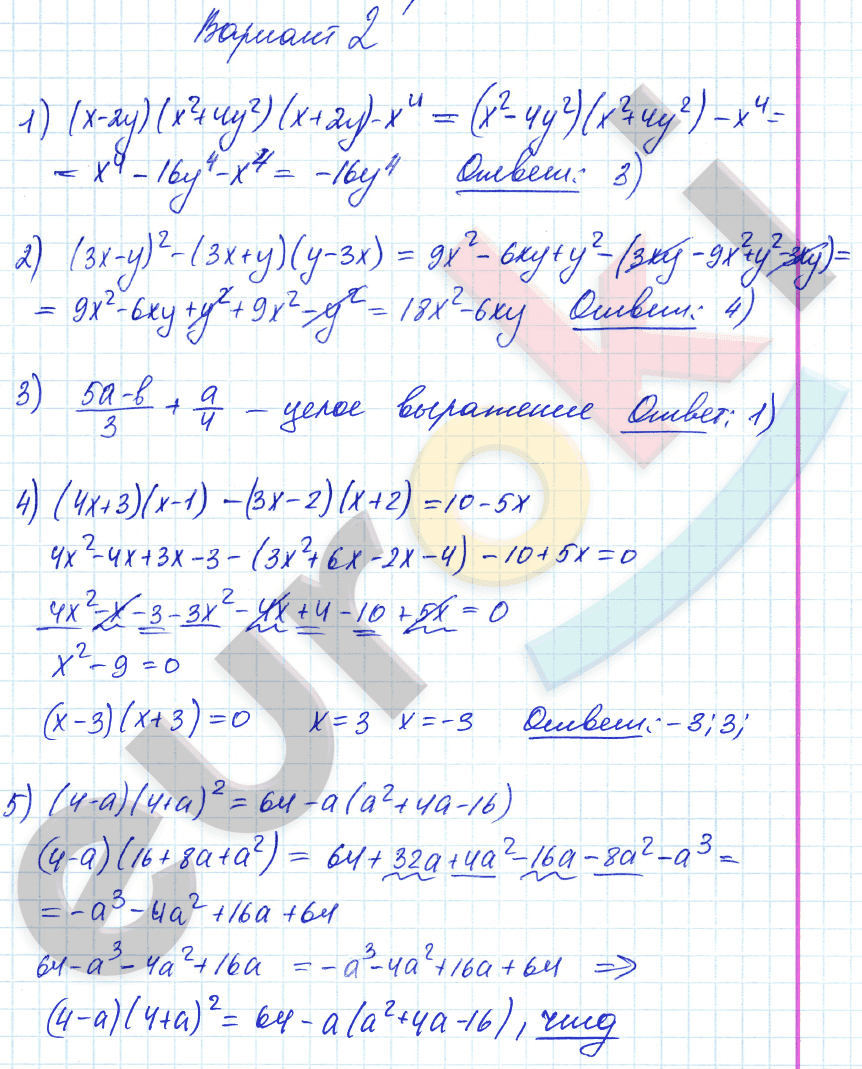 Вариант 2
1) (x-2y)(x²+4y²)(x+2y)-x⁴ = (x²-4y²)(x²+4y²)-x⁴=
= x⁴-16y⁴-x⁴ = -16y⁴ Ответ: 3)
2) (3x-y)²-(3x+y)(y-3x) = 9x²-6xy+y²-(3xy-9x²+y²-3xy)=
= 9x²-6xy+y²+9x²-y² = 18x²-6xy Ответ: 4)
3) (5a-b)/3 + a/4 - целое выражение Ответ: 1)
4) (4x+3)(x-1)-(3x-2)(x+2)=10-5x
4x²-4x+3x-3-(3x²+6x-2x-4)-10+5x=0
4x²-x-3-3x²-4x+4-10+5x=0
x²-9=0
(x-3)(x+3)=0 x=3 x=-3 Ответ: -3; 3;
5) (4-a)(4+a)²=64-a(a²+4a-16)
(4-a)(16+8a+a²) = 64+32a+4a²-16a-8a²-a³=
= -a³-4a²+16a+64
64-a³-4a²+16a = -a³-4a²+16a+64 ⇒
(4-a)(4+a)²=64-a(a²+4a-16), чтд
euroki